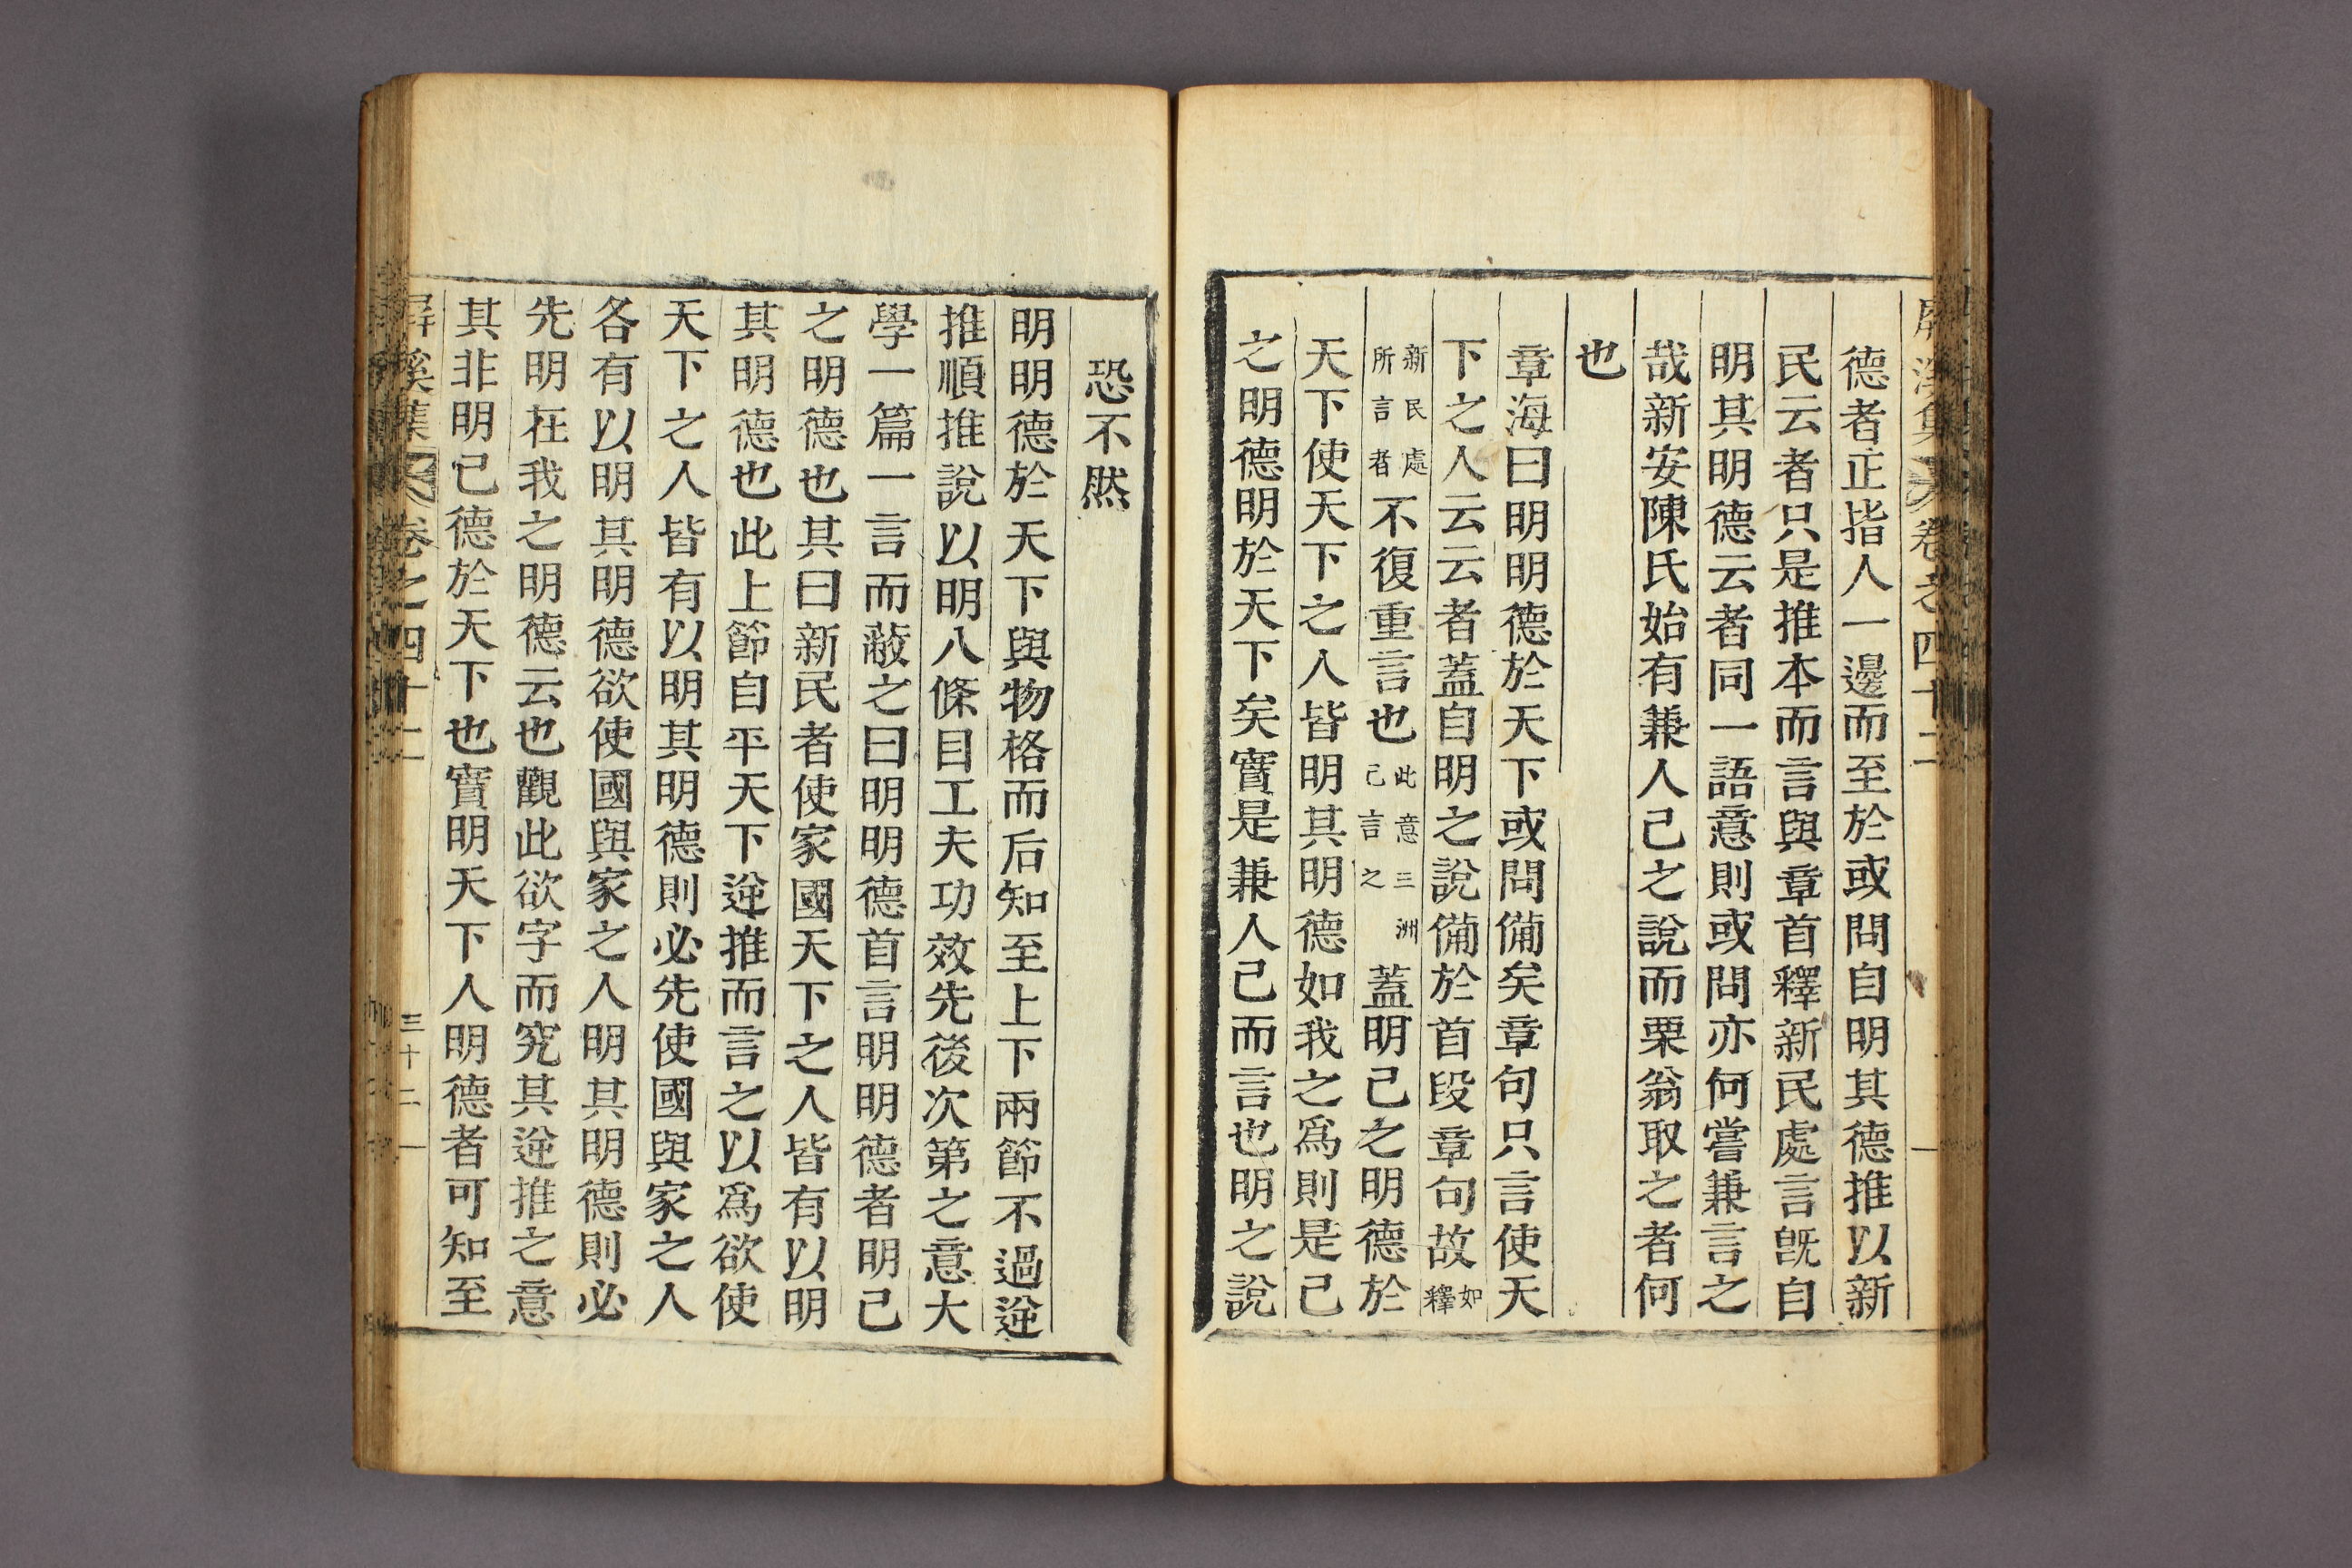 屛溪集 卷之四十二
德者正指人一邊而至於或問自明其德推以新
民云者只是推本而言與章首釋新民處言旣自
明其明德云者同一語意則或問亦何嘗兼言之
哉新安陳氏始有兼人己之說而栗翁取之者何
也
章海曰明明德於天下或問備矣章句只言使天
下之人云云者蓋自明之說備於首段章句故如釋
新民處所言者不復重言也此意三洲已言之蓋明己之明德於
天下使天下之人皆明其明德如我之爲則是己
之明德明於天下矣實是兼人己而言也明之說
恐不然
明明德於天下與物格而后知至上下兩節不過逆
推順推說以明八條目工夫功效先後次第之意大
學一篇一言而蔽之曰明明德首言明明德者明己
之明德也其曰新民者使家國天下之人皆有以明
其明德也此上節自平天下逆推而言之以爲欲使
天下之人皆有以明其明德則必先使國與家之人
各有以明其明德欲使國與家之人明其明德則必
先明在我之明德云也觀此欲字而究其逆推之意
其非明己德於天下也實明天下人明德者可知至
屛溪集 卷之四十二 三十二